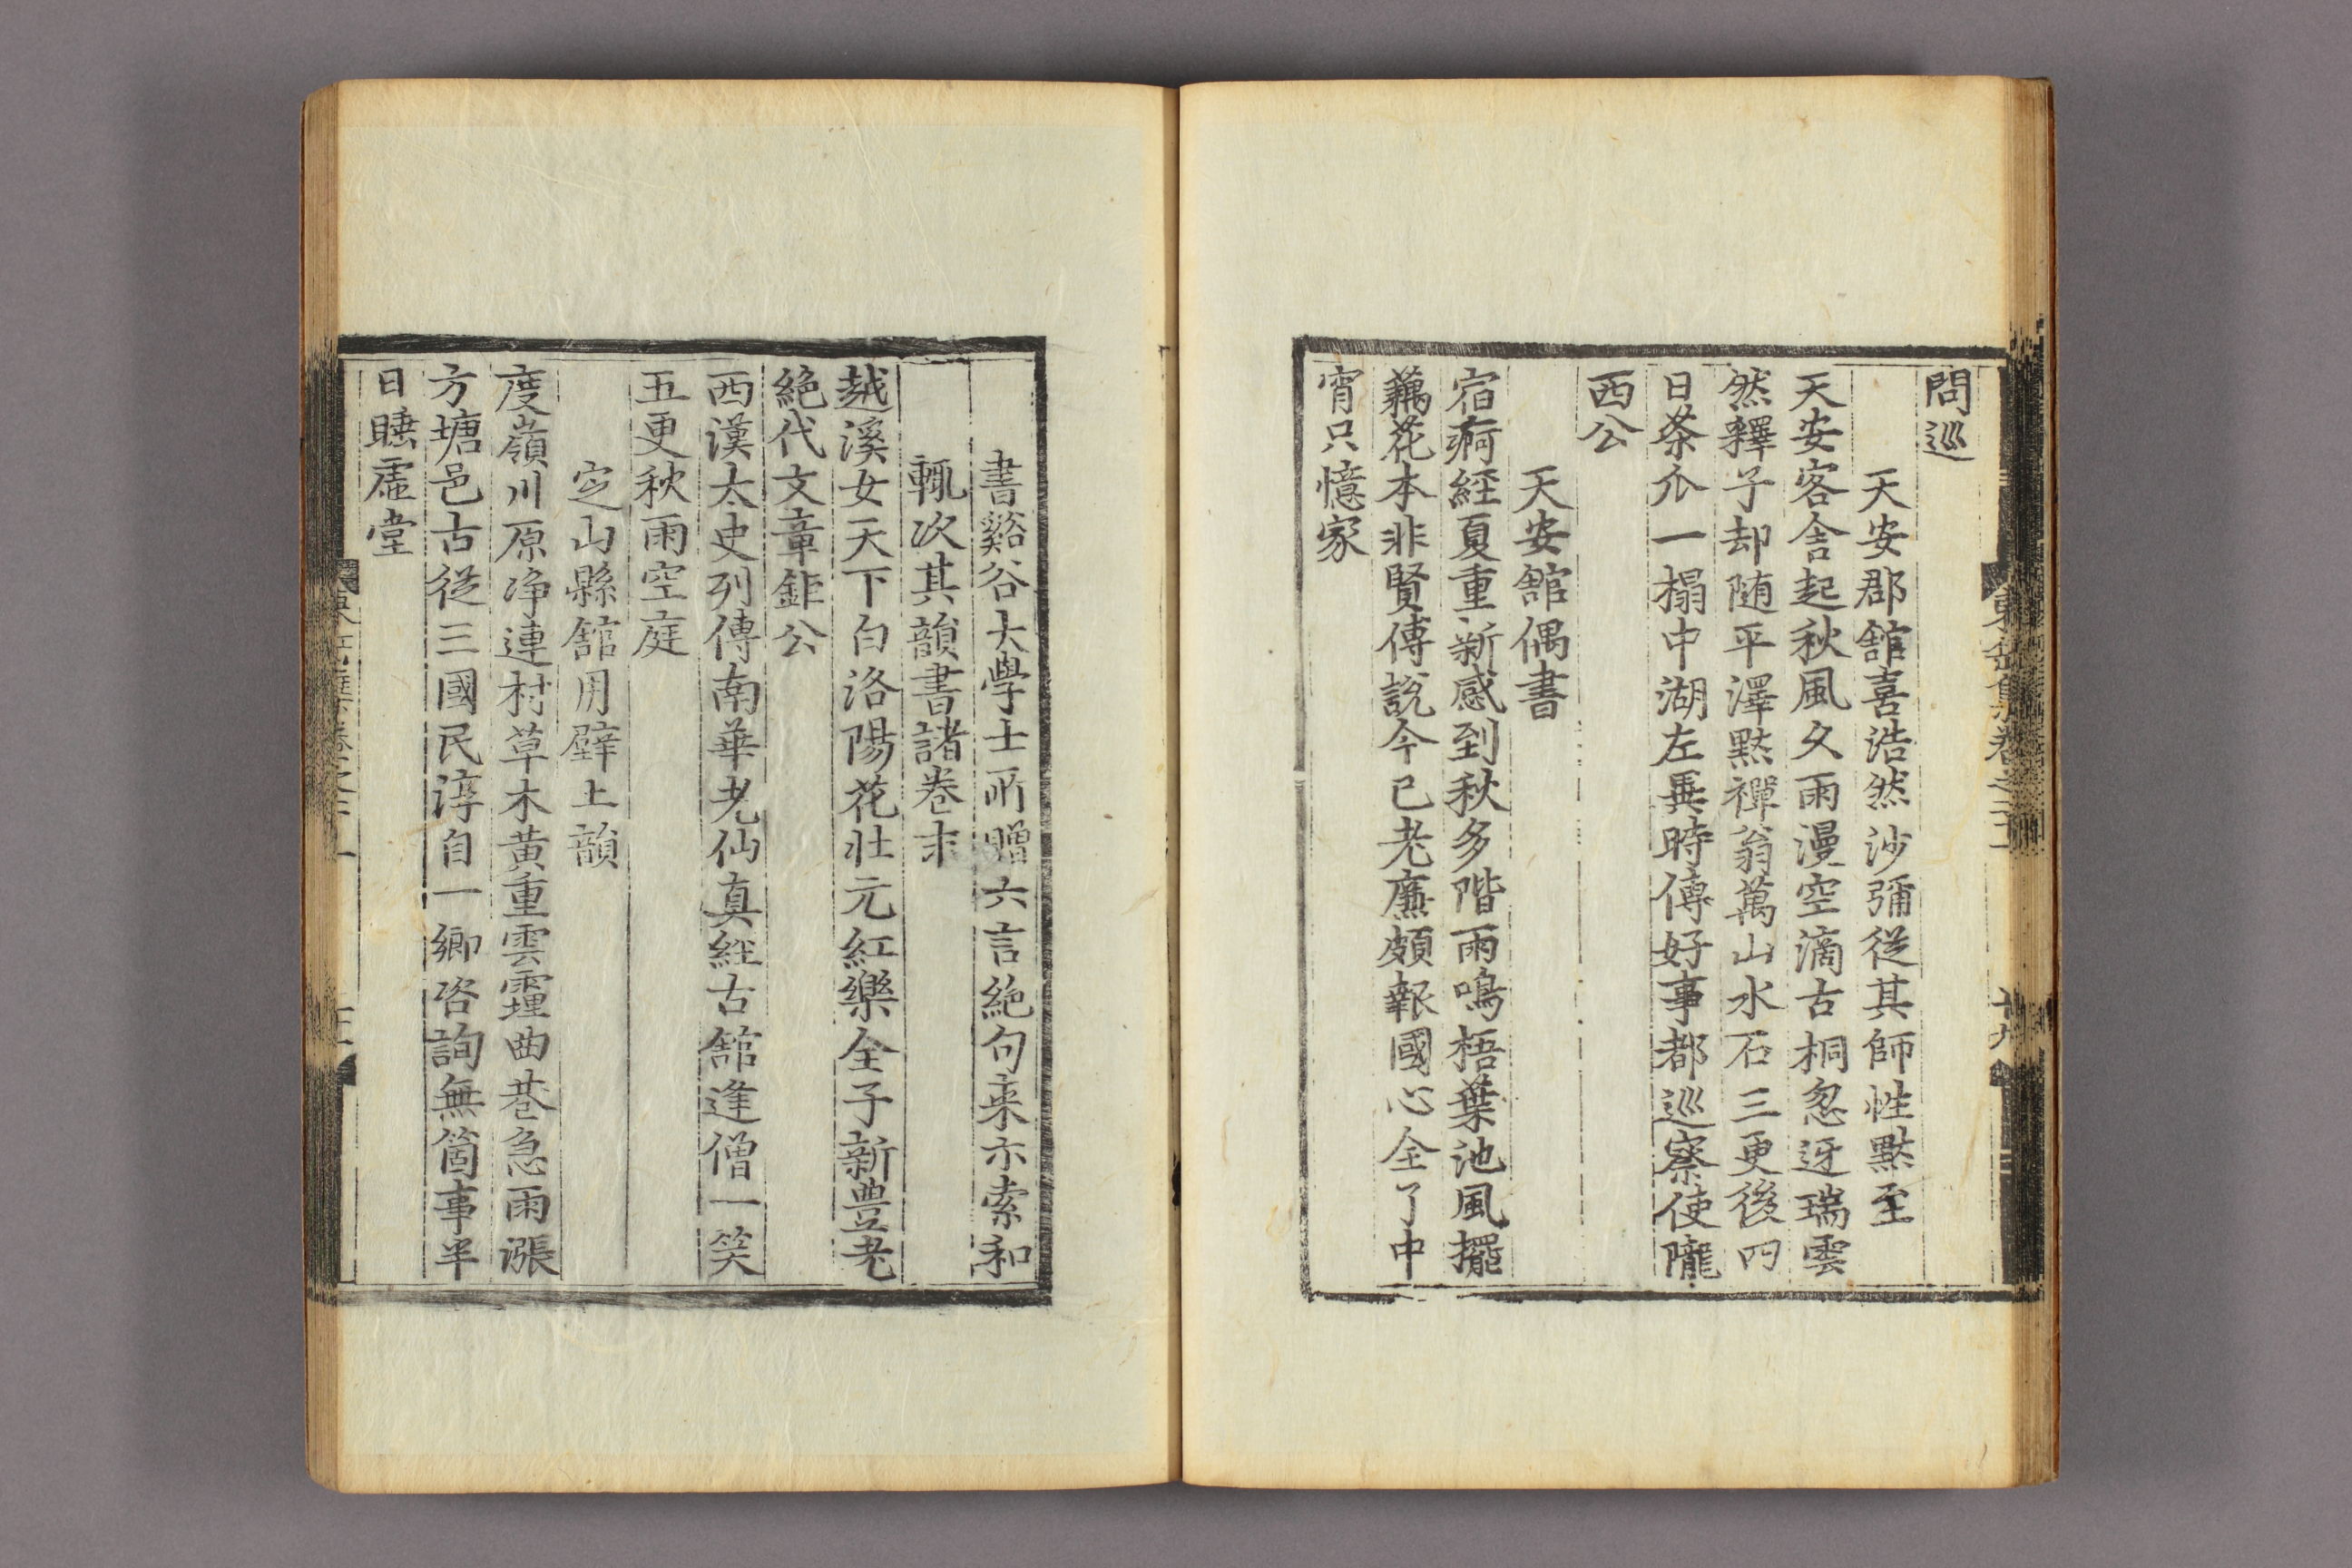 問巡
天安郡舘喜浩然沙彌從其師性默至
天安客舎起秋風久雨漫空滴古桐忽迓瑞雲
然釋子却随平澤默禪翁萬山水石三更後四
日茶介一榻中湖左異時傳好事都巡察使隴
西公
天安舘偶書
宿痾経夏重新感到秋多階雨鳴梧葉池風擺
藕花本非賢傅說今已老廉頗報國心全了中
宵只憶家
卷之二
十九
書谿谷大學士所贈六言絶句来亦索和
輒次其韻書諸卷末
越溪女天下白洛陽花壯元紅樂全子新豊老
絶代文章鉅公
西漢太史列傳南華老仙真経古舘逢僧一笑
五更秋雨空庭
定山縣舘用壁上韻
度嶺川原净連村草木黄重雲霾曲巷急雨漲
方塘邑古従三國民淳自一鄉咨詢無箇事半
日睡虛堂